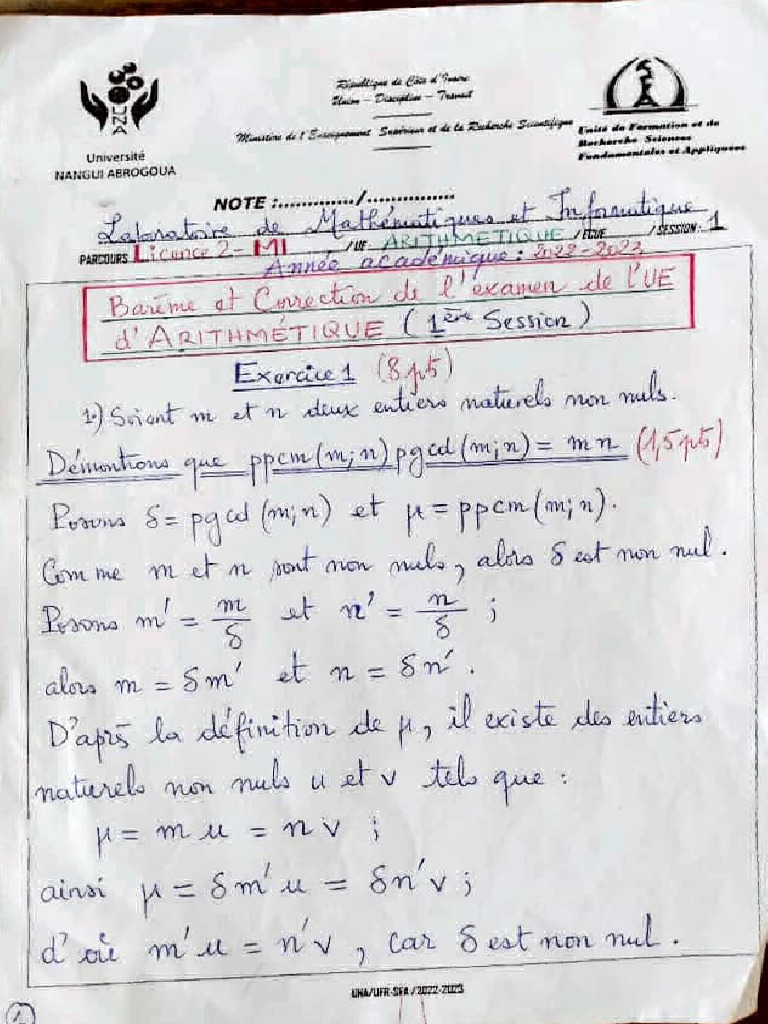 UNA
Université
NANGUI ABROGOUA
République de Côte d'Ivoire
Union – Discipline – Travail
Ministère de l'Enseignement Supérieur et de la Recherche Scientifique
Unité de Formation et de
Recherche Sciences
Fondamentales et Appliquées
NOTE :............../................
Laboratoire de Mathématiques et Informatique
PARCOURS Licence 2 - MI /UE ARITHMETIQUE /ECUE /SESSION: 1
Année académique : 2022-2023
Barème et Correction de l'examen de l'UE
d'ARITHMÉTIQUE (1ère Session)
Exercice 1 (8 pts)
1°) Soient m et n deux entiers naturels non nuls.
Démontrons que ppcm(m;n) pgcd(m;n) = mn (1,5 pts)
Posons δ = pgcd(m;n) et μ = ppcm(m;n).
Comme m et n sont non nuls, alors δ est non nul.
Posons m' = m/δ et n' = n/δ ;
alors m = δm' et n = δn'.
D'après la définition de μ, il existe des entiers
naturels non nuls u et v tels que :
μ = m u = n v ;
ainsi μ = δm'u = δn'v ;
d'où m'u = n'v, car δ est non nul.
UNA/UFR-SFA/2022-2023
1